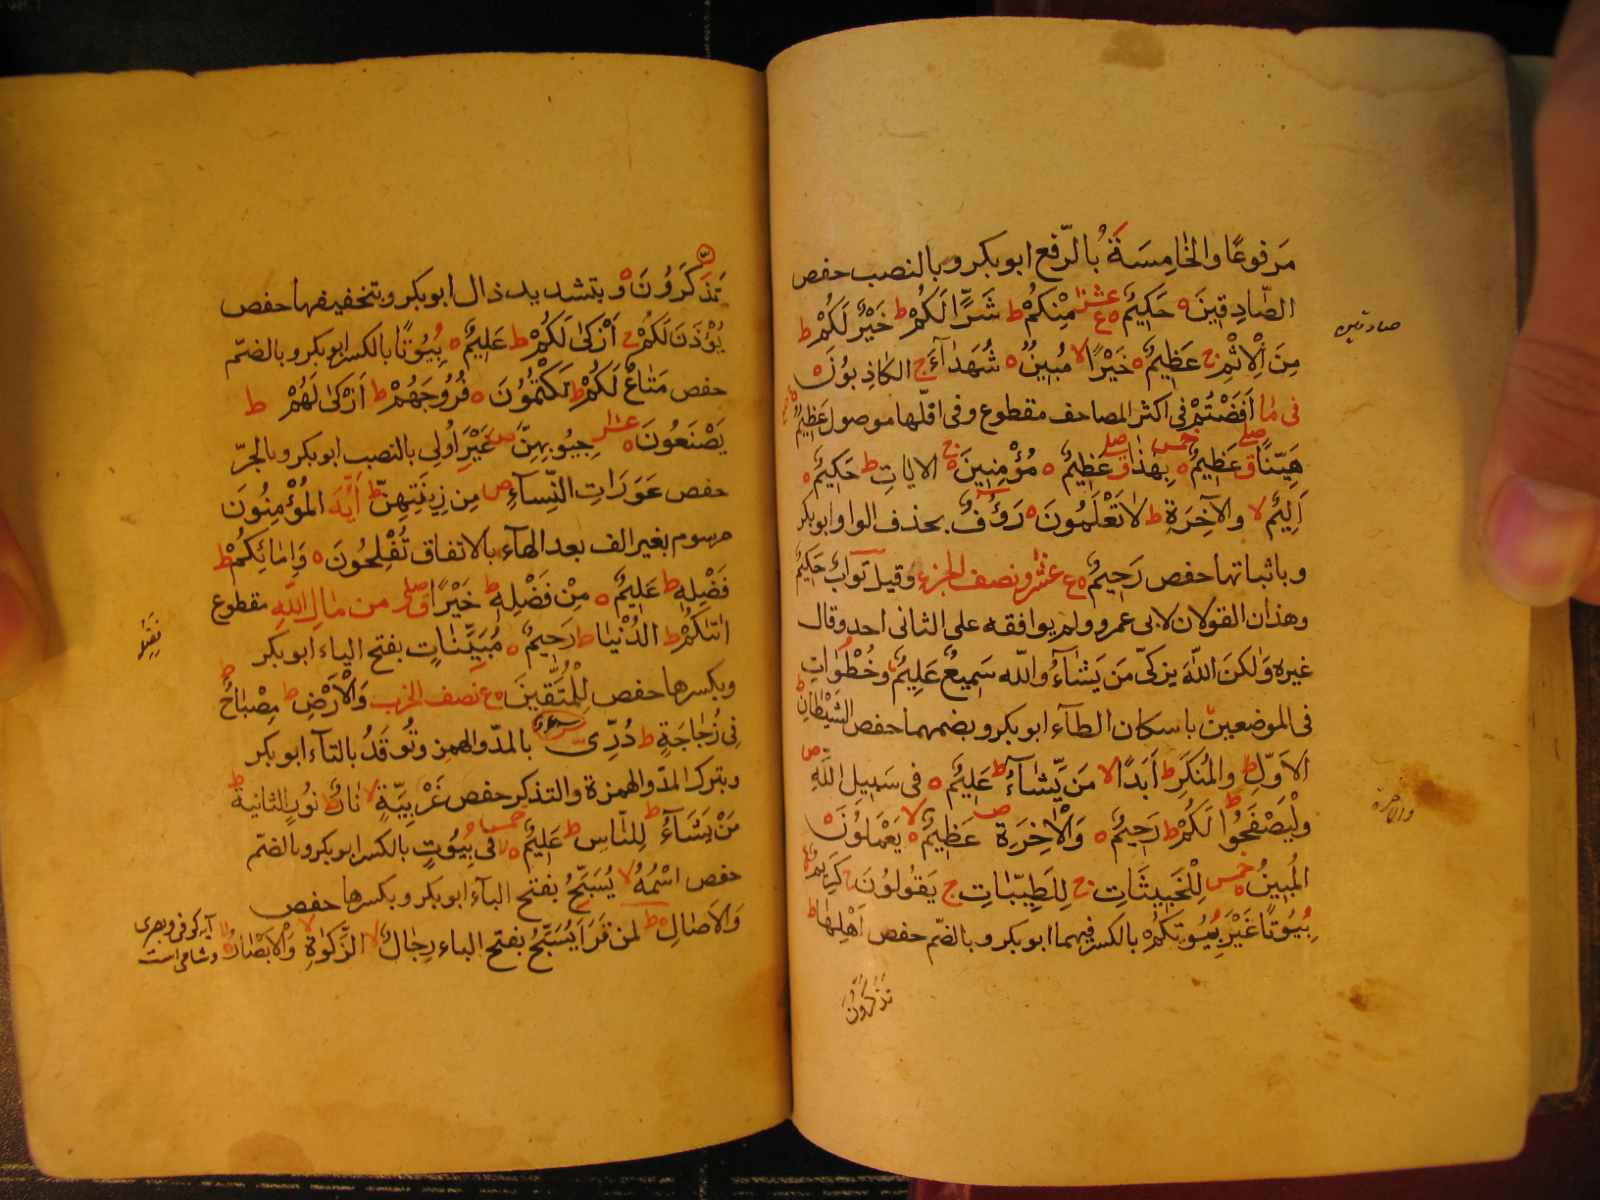 مَرفوعًا والخَامِسَةَُ بالرّفع ابوبكر وبالنصب حفص
الصَّادِقِينَ ه حَكِيمٌ ه ع عشر مِنْكُمْ ط شَرًّا لَكُمْ ط خَيْرٌ لَكُمْ ط
مِنَ الْاِثْمِ ج عَظِيمٌ ه خَيْرًا لا مُبِينٌ ه شُهَدَآءَ ج الكَاذِبُونَ ه
فى مَا اَفَضْتُمْ فى اكثر المصاحف مقطوع وفى اقلّها موصول عَظِيمٌ
هَيِّنًا ق صلے عَظِيمٌ ه خمس بِهٰذَا ق صلے عَظِيمٌ ه مُؤْمِنِينَ ه ج الايَاتِ ط حَكِيمٌ ه
اَلِيمٌ لا والآخِرَةِ ط لَا تَعْلَمُونَ ه رَؤُفٌ بحذف الواو ابوبكر
وباثباتها حفص رَحِيمٌ ه ع عشر ونصف الجزء وقيل تَوَّابٌ حَكِيمٌ
وهذان القولان لابى عمرو ولم يوافقه على الثانى احد وقال
غيره وَلٰكنَ اللّٰهَ يزكىّ مَن يَشَآءُ واللّٰه سَمِيعٌ عَلِيمٌ وخُطُوَاتِ
فى الموضعين باسكان الطآء ابوبكر وبضمهما حفص الشَّيْطَانِ ط
الاَوّلِ ط والمُنكَرِ ط اَبَدًا لا مَن يَّشَآءُ ط عَلِيمٌ ه فى سَبِيلِ اللّٰهِ ص
وَلْيَصْفَحُوا ط لَكُمْ ط رَحِيمٌ ه وَالْاٰخِرَةِ ص عَظِيمٌ ه لا يَعْمَلُونَ ه
المُبِينُ ه خمس لِلْخَبِيثَاتِ ج لِلطَّيِّبَاتِ ج يَقُولُونَ ج كَرِيمٌ ه ع
بُِيُوتًا غَيْرَ بُِيُوتِكُمْ بالكسر فيهما ابوبكر وبالضّم حفص اَهْلِهَا ط
تذَكَّرُونَ
صادقين
والآخرة
تَذَكَّرُونَ ه وبتشديد ذال ابوبكر وبتخفيفها حفص
يُؤْذَنَ لَكُمْ ج اَزْكىٰ لَكُمْ ط عَلِيمٌ ه بُِيُوتًا بالكسر ابوبكر وبالضّم
حفص مَتَاعٌ لَكُمْ ط تَكْتُمُونَ ه فُرُوجَهُمْ ط اَزْكىٰ لَهُمْ ط
يَصْنَعُونَ ه عشر جُِيُوبِهِنَّ ص غَيْرَِ اُولِى بالنصب ابوبكر وبالجرّ
حفص عَوَرَاتِ النِّسَآءِ ص مِن زِينَتِهِنَّ ط اَيُّهَ المُؤْمِنُونَ
مرسوم بغير الف بعد الهآء بالاتفاق تُفْلِحُونَ ه وَاِمَائِكُمْ ط
فَضْلِهِ ط عَلِيمٌ ه مِنْ فَضْلِهِ ط خَيْرًا ق صلے من مَالِ اللّٰهِ مقطوع
اتٰىكُمْ ط الدُّنْيَا ط رَحِيمٌ ه مُبَيَِّنَاتٍ بفتح الياء ابوبكر
وبكسرها حفص لِلْمُتَّقِينَ ه ع نصف الحزب وَالْاَرْضِ ط مِصْبَاحٌ ط
فِى زُجَاجَةٍ ط دُرِّىٌّ بالمدّ والهمز وتُوقَدُ بالتآء ابوبكر
وبترك المدّ والهمزة والتذكير حفص غَرْبِيَّةٍ لا نَارٌ ط نُورٍ الثانية ط
مَنْ يَشَآءُ ط لِلنَّاسِ ط عَلِيمٌ ه لا خمس فى بُِيُوتٍ بالكسر ابوبكر وبالضّم
حفص اسْمُهُ لا يُسَبَِّحُ بفتح البآء ابوبكر وبكسرها حفص
وَالْاٰصَالِ ط لمن قَرَأ يُسَبَّحُ بفتح الباء رِجَالٌ لا الزَّكٰوةِ لا وَالْاَبْصَارُ ه لا